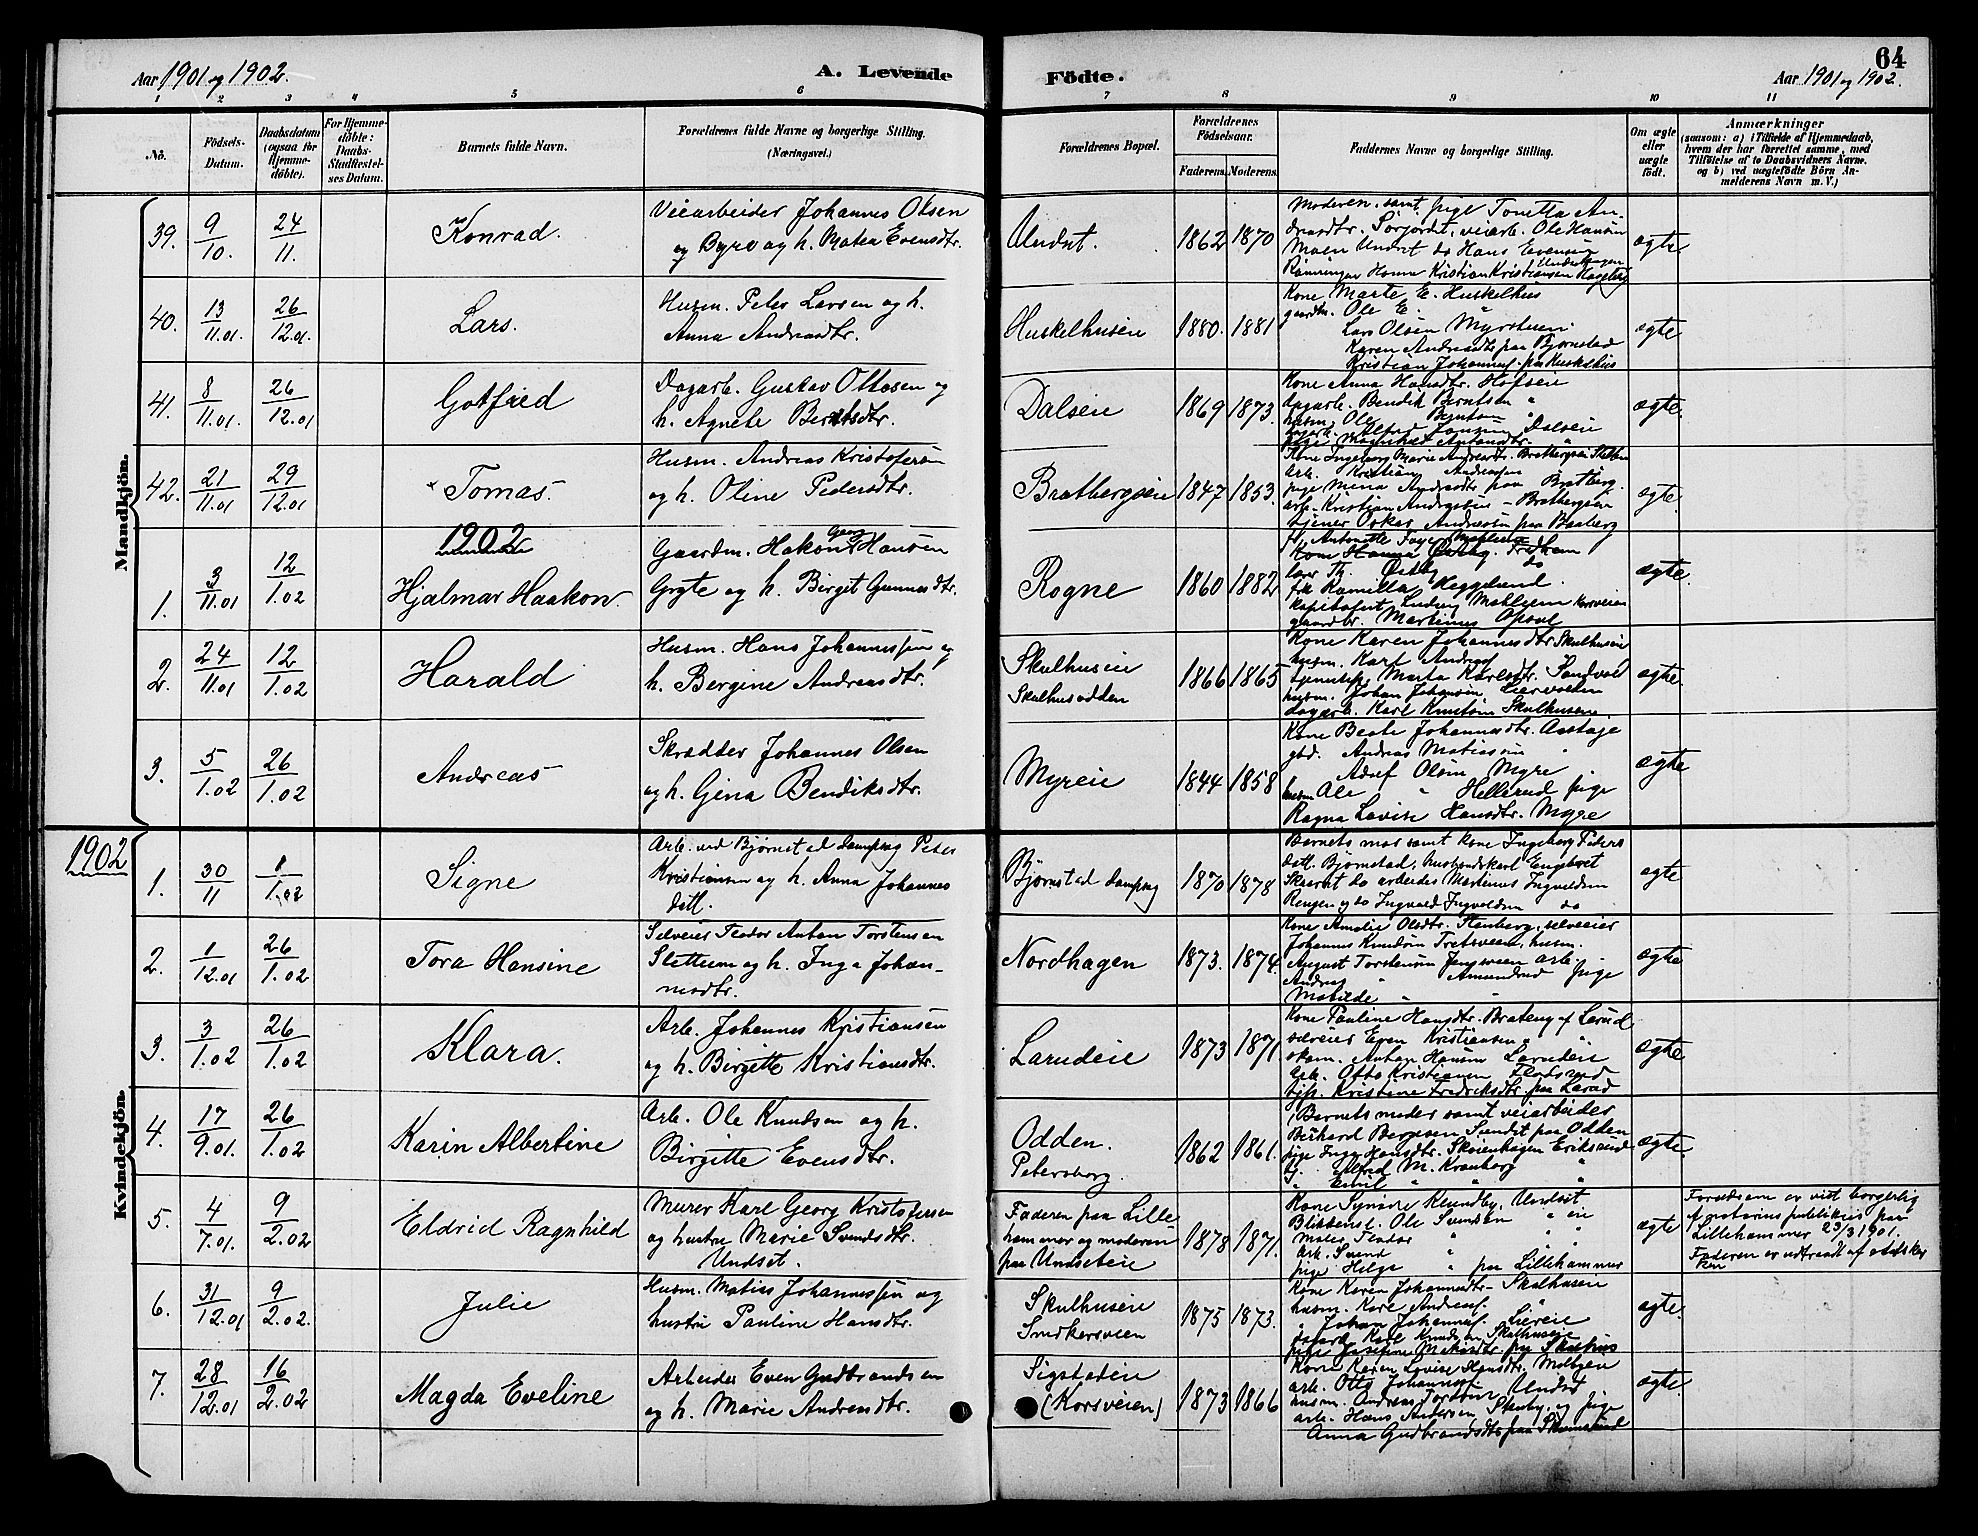 Aar 1901 og 1902.
A. Levende
Födte.
64
Aar 1901 og 1902.
1 2 3 4 5 6 7 8 9 10 11
No.
Födsels-
Datum.
Daabsdatum
(ogsaa for
Hjemme-
døbte).
For Hjemme-
døbte:
Daabs-
Stadfæstel-
ses Datum.
Barnets fulde Navn.
Forældrenes fulde Navne og borgerlige Stilling.
(Næringsvei.)
Forældrenes Bopæl.
Forældrenes
Födselsaar.
Faderens. Moderens.
Faddernes Navne og borgerlige Stilling.
Om ægte
eller
uægte
født.
Anmærkninger
(saasom: a) i Tilfælde af Hjemmedaab,
hvem der har forrettet samme, med
Tilføielse af to Daabsvidners Navne.
og b) ved uægtefødte Börn An-
melderens Navn m. V.)
Mandkjön.
39. 9/10. 24/11. Konrad.
Veiarbeider Johannes Olsen
og Byro og h. Matea Evensdtr.
Undset. 1862 1870
Moderen, samt pige Tonetta An-
dreasdtr. Sørjordet, veiarb. Ole Hansen
Moen Undset do Hans Evensen
Kristian Kristiansen Hageberg
ægte
40. 13/11.01. 26/12.01 Lars.
Husm. Peter Larsen og h.
Anna Andreasdtr.
Huskelhuseie 1880. 1881
Kone Marte E. Huskelhus
gaardm. Ole E. "
Lars Olsen Myrstuen.
Karen Andreasdtr paa Bjørnstad
Kristian Johannesf. paa Huskelhus
ægte
41. 8/11.01. 26/12.01 Gotfred
Dagarb. Gustav Ottosen og
h. Agnete Berntsdtr.
Dalseie 1869 1873.
Kone Anna Hansdtr. Hofseie
dagarb. Bendik Berntsen "
husm. Ole Berntsen "
dagarb. Alfred Jonsen Dalseie
pige Magnhild Antonsdtr. "
ægte.
42. 21/11.01 29/12.01 Tomas.
Husm. Andreas Kristofersen
og h. Oline Pedersdtr.
Bratbergseie 1847 1853.
Kone Ingeborg Marie Andreasdtr. Bratbergseie
arb. Kristian Andreasen
pige Mina Andreasdtr paa Bratberg.
arb. Kristian Andreassen - Bratbergseie
tjener Oskar Andreasen paa Baaberg
ægte.
1902
1. 3/11.01 12/1.02 Hjalmar Haakon.
Gaardm. Hakon Georg Hansen
Gryte og h. Birgit Gunnarsdtr.
Rogne 1860 1882
lærer Th. Østby do
frk Kamilla Heggelund.
Ludvig Korsveien
gaardbr. Martinus Opsal
ægte.
2. 24/11.01 12/1.02 Harald
Husm. Hans Johannessen og
h. Bergine Andreasdtr.
Skulhuseie
Skulhusodden
1866 1865
Kone Karen Johannesdtr Skulhuseie
husm. Karl Andreasf.
Marta Karlsdtr. Sandvold
husm. Johan Johansen
dagarb. Karl Knutsen Skulhuseie
ægte.
3. 5/1.02 26/1.02 Andreas
Skrædder Johannes Olsen
og h. Gina Bendiksdtr.
Myreie 1844 1858
Kone Beate Johannesdtr. Aastaje
gbd. Andreas Matiassen "
Adolf Olsen Myre
husm Ole " Hellerud pige
Ragna Lovise Hansdtr. Myre
ægte
1902
Kvindekjön.
1. 30/11 1/1.02 Signe
Arb. ved Bjørnstad dampsag Peter
Kristiansen og h. Anna Johannes
datt.
Bjørnstad dampsag 1870 1878
Barnets mor samt kone Ingeborg Peders
datt. Bjørnstad, husbondskarl Engebret
do arbeider Martinus Ingvoldsen
Rengen og do Ingvald Ingvoldsen do
ægte
2. 1/12.01 26/1.02 Tora Hansine
Selveier Teodor Anton Torstensen
Slettum og h. Inga Johan-
nesdtr.
Nordhagen 1873. 1874
Kone Amalie Olsdtr. Stenberg, selveier
Johannes Knudsen Tretsveen, husm.
August Torstensen arb.
Andreas " Amundrud pige
Matilde " "
ægte
3. 3/1.02 26/1.02 Klara.
Arb. Johannes Kristiansen
og h. Birgitte Kristiansdtr.
Larudeie 1873 1871
Kone Pauline Hansdtr. Brateng af Larud
selveier Even Kristiansen "
skom. Anton Hansen Larudeie
Arb. Otto Kristiansen
tjp. Kristine Fredriksdtr. paa Larud
ægte
4. 17/9.01. 26/1.02 Karin Albertine
Arb. Ole Knudsen og h.
Birgitte Evensdtr.
Odden.
Petersborg.
1862 1861.
Barnets moder samt veiarbeider
Berhard Bergesen Sundet paa Odden
pige Inga Hansdtr. Skeienhagen Eriksrud
Alfred M. Kranborg "
" Emil " " "
ægte.
5. 4/7.01. 9/2.02 Eldrid Ragnhild
Murer Karl Georg Kristofersen
og hustru Marie Svendsdtr.
Undset.
Faderen paa Lille
hammer og moderen
paa Undseteie
1878 1871.
Kone Synøve Klundby, Undset
Blikkensl. Ole Svendsen " eie
Maler Teodor " "
Arb. Svend " "
pige Helga " paa Lillehammer
ægte
Forældrene er viet borgerlig
af notarius publikus paa
Lillehammer 23/3 1901.
Faderen er udtraadt af statskir
ken
6. 31/12.01 9/2.02. Julie
Husm. Matias Johannessen og
hustru Pauline Hansdtr.
Skulhuseie
Smikersveen
1875 1873.
Kone Karen Johannesdtr. Skulhuseie
husm. Karl Andreasf. "
" Johan Johannesf. Liereie
dagarb. Karl Knudsen Skulhuseie
pige Josefine paa Skulhus
ægte.
7. 28/12.01 16/2.02 Magda Eveline
Arbeider Even Gudbrandsen
og h. Marie Andreasdtr.
Sigstadeie
(Korsveien)
1873 1866
Kone Karen Lovise Hansdtr. Moltgen
arb. Otto Johannesf. "
husm. Andreas Undset
arb. Hans Andersen, Stenby, og pige
Anna Gudbrandsdtr paa
ægte